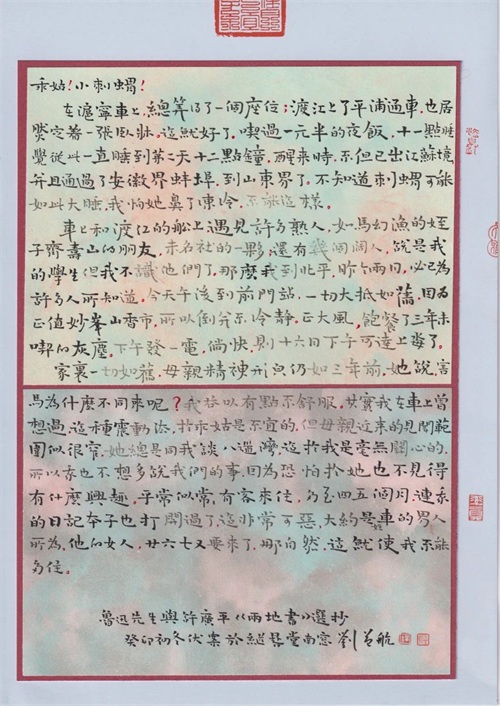 乖姑！小刺蝟！
在滬寧車上，總算得了一個座位；渡江上了平浦通車，也居
然定着一張臥牀。這就好了。喫過一元半的夜飯，十一點睡
覺從此一直睡到第二天十二點鐘，醒來時，不但已出江蘇境，
并且通過了安徽界蚌埠，到山東界了。不知道刺蝟可能
如此大睡，我怕她鼻子凍冷，不能這樣。
車上和渡江的船上遇見許多熟人，如馬幼漁的姪
子齊壽山的朋友，未名社的一夥；還有幾個闊人，說是我
的學生但我不識他們了。那麼我到北平，昨今兩日，必已為
許多人所知道。今天午後到前門站，一切大抵如舊，因為
正值妙峯山香市，所以倒并不冷靜。正大風，飽餐了三年未
喫的灰塵。下午發一電，倘快則十六日下午可達上海了。
家裏一切如舊，母親精神形貌仍如三年前，她說害
馬為什麼不同來呢？我答以有點不舒服。其實我在車上曾
想過，這種震動法，於乖姑是不宜的。但母親近來的見聞範
圍似很窄，她總是同我談八道灣，這於我是毫無關心的，
所以我也不想多說我們的事，因為恐怕於她也不見得
有什麼興趣。平常似常有客來住，多至四五個月，連我
的日記本子也打開過了，這非常可惡，大約是姓車的男人
所為，他的女人，廿六七又要來了，那自然，這就使我不能
多住。
魯迅先生與許廣平《兩地書》選抄
癸卯初冬伏案於 堂南窗 劉 航